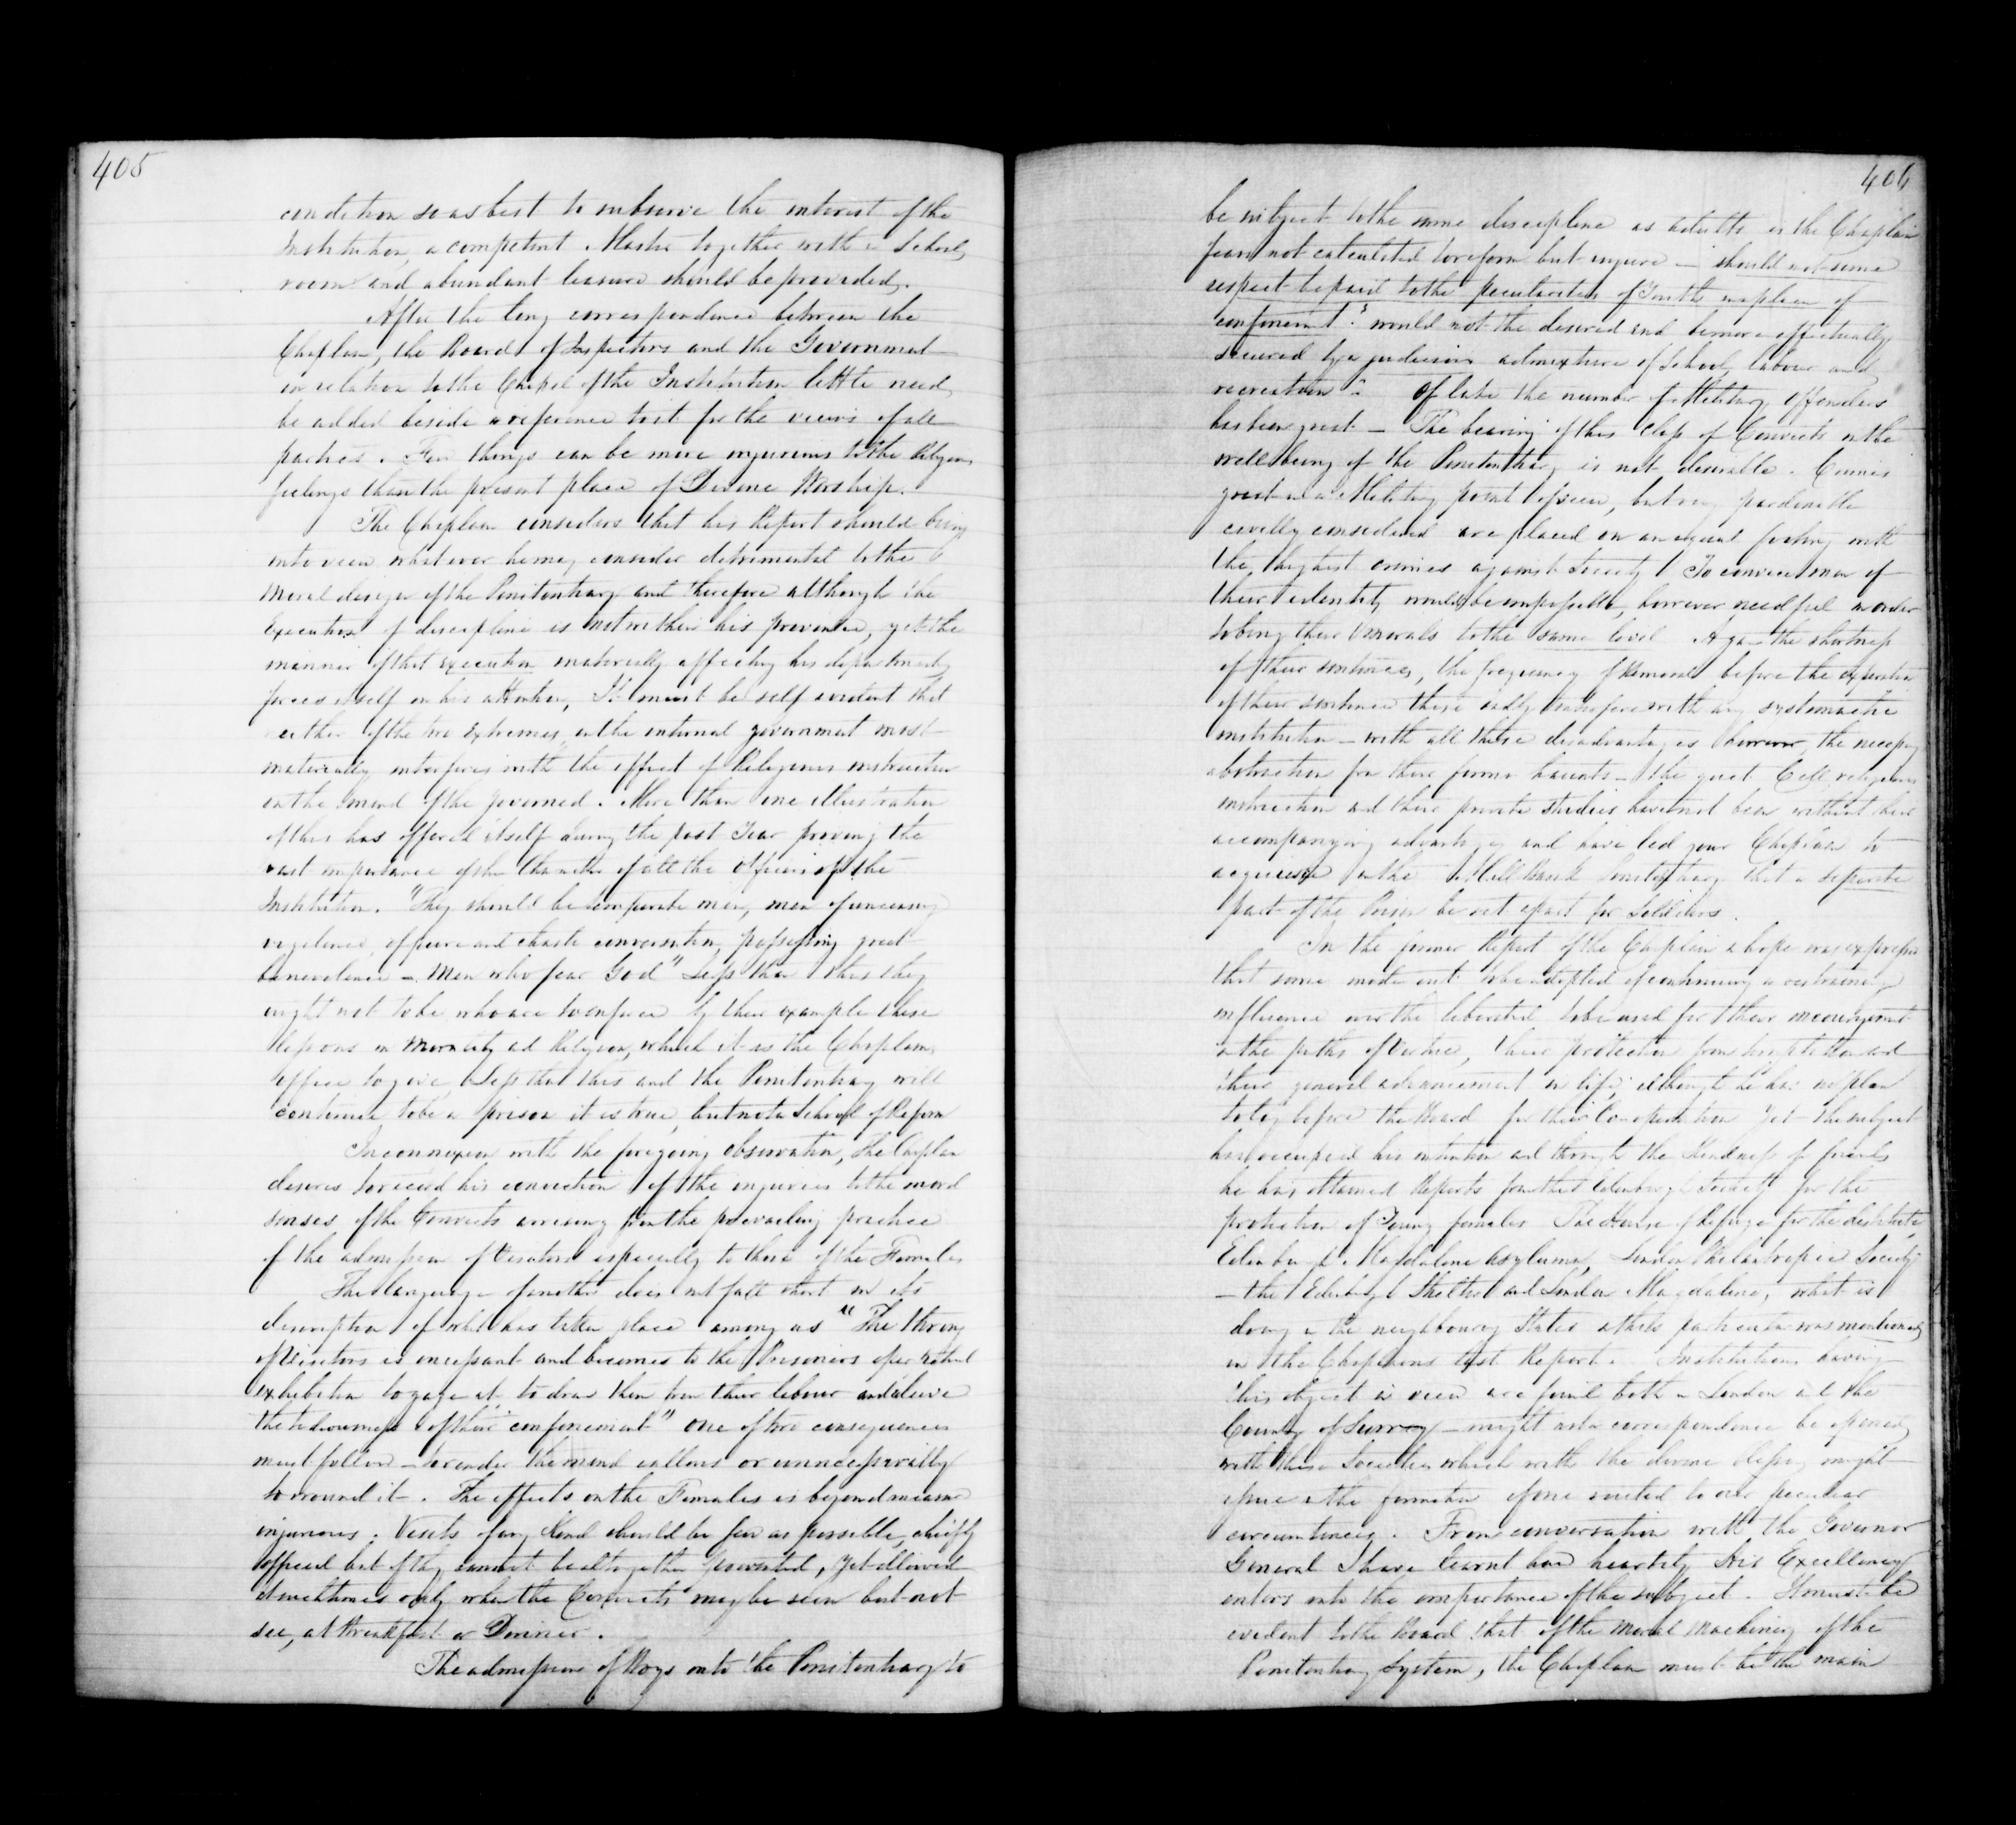 405
condition so as best to subserve the interest of the
Institution, a competent Master together with a School
room and abundant leasure should be provided.
After the long correspondence between the
Chaplain, the Board of Inspectors and the Government
in relation to the Chapel of the Institution little need
be added beside a reference to it for the views of all
parties. Few things can be more injurious to the Religious
feelings than the present place of Devine Worship.
The Chaplain considers that his Report should bring
into view whatever he may consider detrimental to the
Moral design of the Penitentiary and therefore although the
Execution of discipline is not within his province, yet the
manner of that execution materially affecting his department
forces itself on his attention, It must be self evident that
either of the two extremes in the internal government most
materially interferes with the effect of Religious instruction
on the mind of the governed. More than one illustration
of this has offered itself during the past Year proving the
vast importance of the Character of all the Officers of the
Institution. "They should be temperate men, men of unceasing
vigilance, of pure and chaste conversation, possessing great
benevolence – Men who fear God" Less than this they
ought not to be who are to enforce by their example those
lessons in Morality and Religion, which it is the Chaplains
office to give, Less that this and the Penitentiary will
continue to be a prison it is true, but not a School of Reform
In connexion with the foregoing observation, The Chaplain
desires to record his conviction of the injuries to the moral
senses of the Convicts arrising from the prevailing practice
of the admission of Visitors especially to those of the Females
The language of another does not fall short in its
description of what has taken place among us "The throng
of Visitors is incessant and becomes to the Prisoners a perpetual
exhibition to gaze at, to draw them from their labour and relieve
the tediousness of their confinement" One of two consequences
must follow – to render the mind callous or unnecessarilly
to wound it. The effects on the Females is beyond measure
injurious. Visits of any kind should be few as possible, chiefly
official but if they cannot be altogether prevented, yet allowed
at such times only when the Convicts may be seen but not
see, at Breakfast or Dinner.
The admissions of Boys into the Penitentiary to
406
be subject to the same discipline as adults is the Chaplain
fears not calculated to reform but injure – should not some
respect be paid to the peculiarities of Youth in a place of
confinement? would not the desired end be more effectually
secured by a judicious admixture of School, labour and
recreation? Of late the number of Military Offenders
has been great – The bearing of this Class of Convicts on the
well being of the Penitentiary is not desirable. Crimes
great in a Military point of view, but very pardonable
civilly considered are placed on an equal footing with
the highest crimes against Society! To convince men of
their identity would be impossible, however needful in order
to bring their Morals to the same level Again the shortness
of their sentences, the frequency of removal before the expiration
of their sentence these sadly interfere with any systematic
institution – with all these disadvantages however, the necessary
abstraction from their former haunts – the quiet Cell religious
instruction and their private studies have not been without their
accompanying advantages and have led your Chaplain to
acquiesce in the Mill Bank Penitentiary that a separate
part of the Prison be set apart for Soldiers.
In the former Report of the Chaplain a hope was expressed
that some mode might be adopted of continuing a restraining
influence over the liberated to be used for their encouragement
in the paths of Virtue, their protection from temptation and
their general advancement in life; although he has no plan
to lay before the Board for their Co-operation Yet the subject
has occupied his attention and through the Kindness of friends
he has obtained Reports from the Edinburgh Society for the
protection of Young females The House of Refuge for the destitute
Edinburgh Magdalene Asylum, London Philantropic Society
– the Edinburgh Shelter and London Magdalene, what is
doing in the neighbouring States in this particular was mentioned
in the Chaplains last Report. Institutions having
this object in view are found both in London and the
County of Surrey – might not a correspondence be opened
with these Societies which with the divine blessing might
issue in the formation of one suited to our peculiar
circumstances. From conversation with the Governor
General I have learnt how heartily His Excellency
enters into the importance of the subject. It must be
evident to the Board that of the Moral Machinery of the
Penitentiary System, the Chaplain must be the main